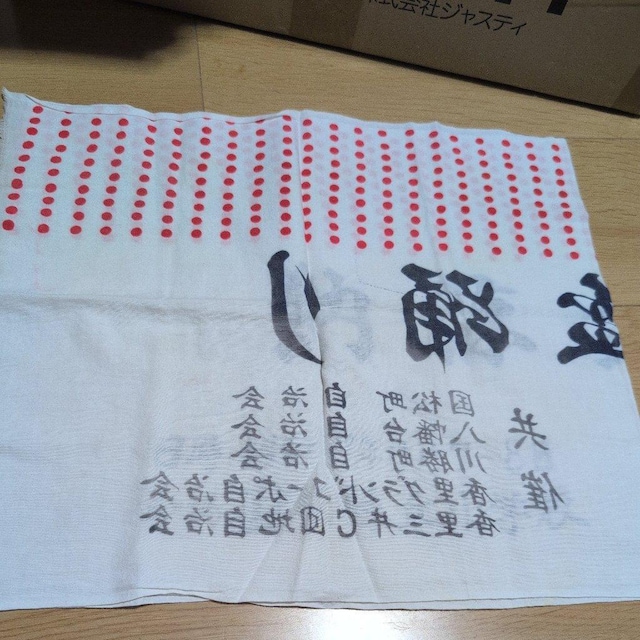 株式会社ジャスティ
盆踊り
共催
国松町自治会
八幡台自治会
川勝町自治会
香里グランドコーポ自治会
香里三井C団地自治会